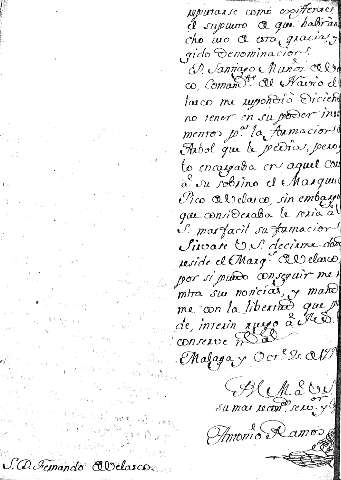 reputarse como existenci
el supuesto de que habran
cho uso de esta gracia, y
gido Denominacion.
D.n Santiago Muñoz de Vel
co, Coman.te de Navio el
lasco me respondio dicien
no tener en su poder ins
mentos p.a la formacion
Arbol que le pedia, pero
lo encargaba en aquel co
a su sobrino el Marqu
Pico de Velasco, sin embarg
que consideraba le seria a
S. mas facil su formacion
Sirvase V.S. decirme don
reside el Marq.s de Velasco,
por si puedo conseguir me
mita sus noticias, y mand
me con la libertad que p
de, interin ruego a
conserve
Malaga y Oct.e 21 de 17
B L M a V S
su mas
Antonio Ramos
S. D. Fernando de Velasco